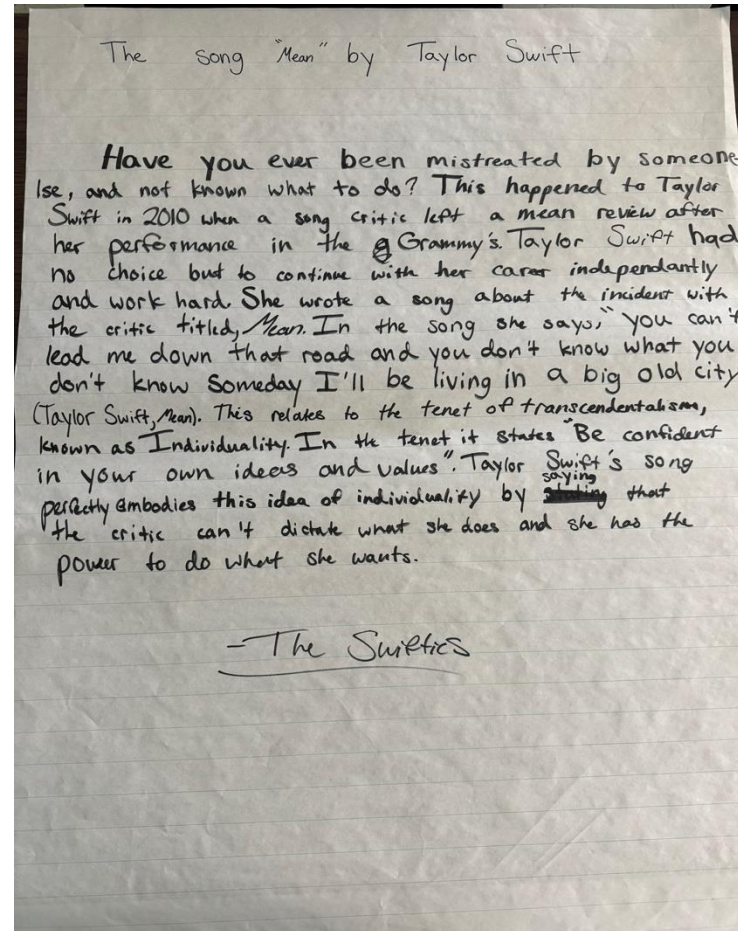 The song "Mean" by Taylor Swift
Have you ever been mistreated by someone
lse, and not known what to do? This happened to Taylor
Swift in 2010 when a song critic left a mean review after
her performance in the Grammy's. Taylor Swift had
no choice but to continue with her carer independantly
and work hard. She wrote a song about the incident with
the critic titled, Mean. In the song she says," you can't
lead me down that road and you don't know what you
don't know someday I'll be living in a big old city
(Taylor Swift, Mean). This relates to the tenet of transcendentalism,
known as Individuality. In the tenet it states "Be confident
in your own ideas and values". Taylor Swift's song
perfectly embodies this idea of individuality by saying that
the critic can't dictate what she does and she has the
power to do what she wants.
-The Swifties